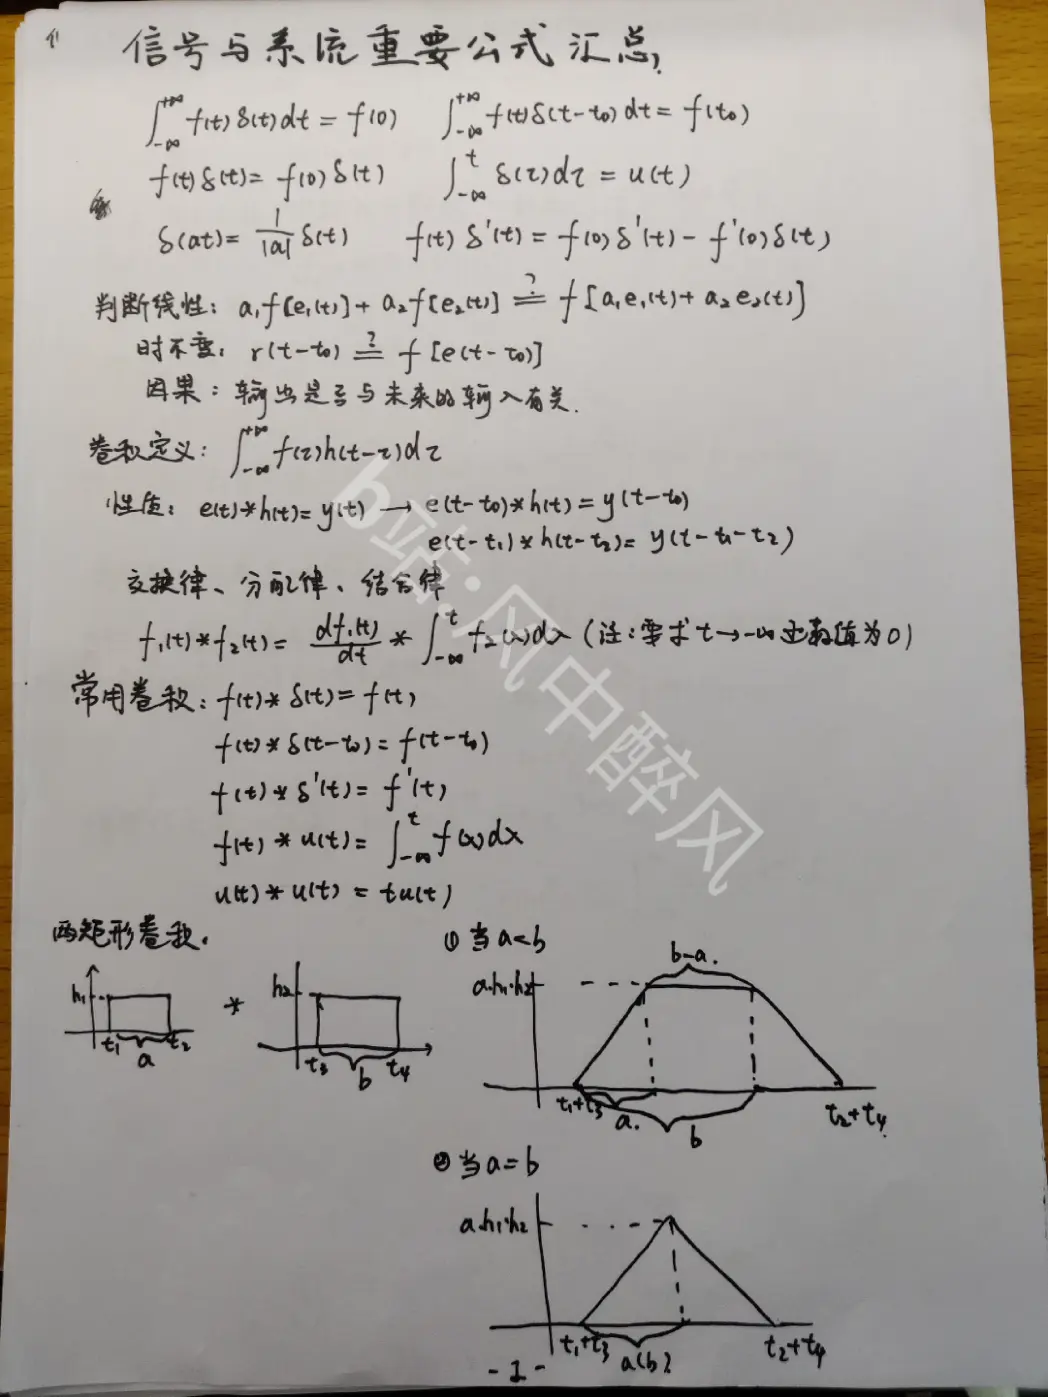 信号与系统重要公式汇总
∫_{-∞}^{+∞} f(t)δ(t)dt = f(0)    ∫_{-∞}^{+∞} f(t)δ(t-t₀)dt = f(t₀)
f(t)δ(t) = f(0)δ(t)    ∫_{-∞}^{t} δ(τ)dτ = u(t)
δ(at) = 1/|a| δ(t)    f(t)δ'(t) = f(0)δ'(t) - f'(0)δ(t)
判断线性: a₁f[e₁(t)] + a₂f[e₂(t)] ≟ f[a₁e₁(t) + a₂e₂(t)]
时不变: r(t-t₀) ≟ f[e(t-t₀)]
因果: 输出是否与未来的输入有关.
卷积定义: ∫_{-∞}^{+∞} f(τ)h(t-τ)dτ
性质: e(t)*h(t) = y(t) → e(t-t₀)*h(t) = y(t-t₀)
e(t-t₁)*h(t-t₂) = y(t-t₁-t₂)
交换律、分配律、结合律
f₁(t)*f₂(t) = df₁(t)/dt * ∫_{-∞}^{t} f₂(λ)dλ (注:需求t→-∞函数值为0)
常用卷积: f(t)*δ(t) = f(t)
f(t)*δ(t-t₀) = f(t-t₀)
f(t)*δ'(t) = f'(t)
f(t)*u(t) = ∫_{-∞}^{t} f(λ)dλ
u(t)*u(t) = tu(t)
两矩形卷积.
h₁ t₁ a t₂
*
h₂ t₃ b t₄
① 当a<b
b-a.
a·h₁·h₂
t₁+t₃ a. b t₂+t₄
② 当a=b
a·h₁·h₂
t₁+t₃ a(b) t₂+t₄
-1-
b站:风中醉风